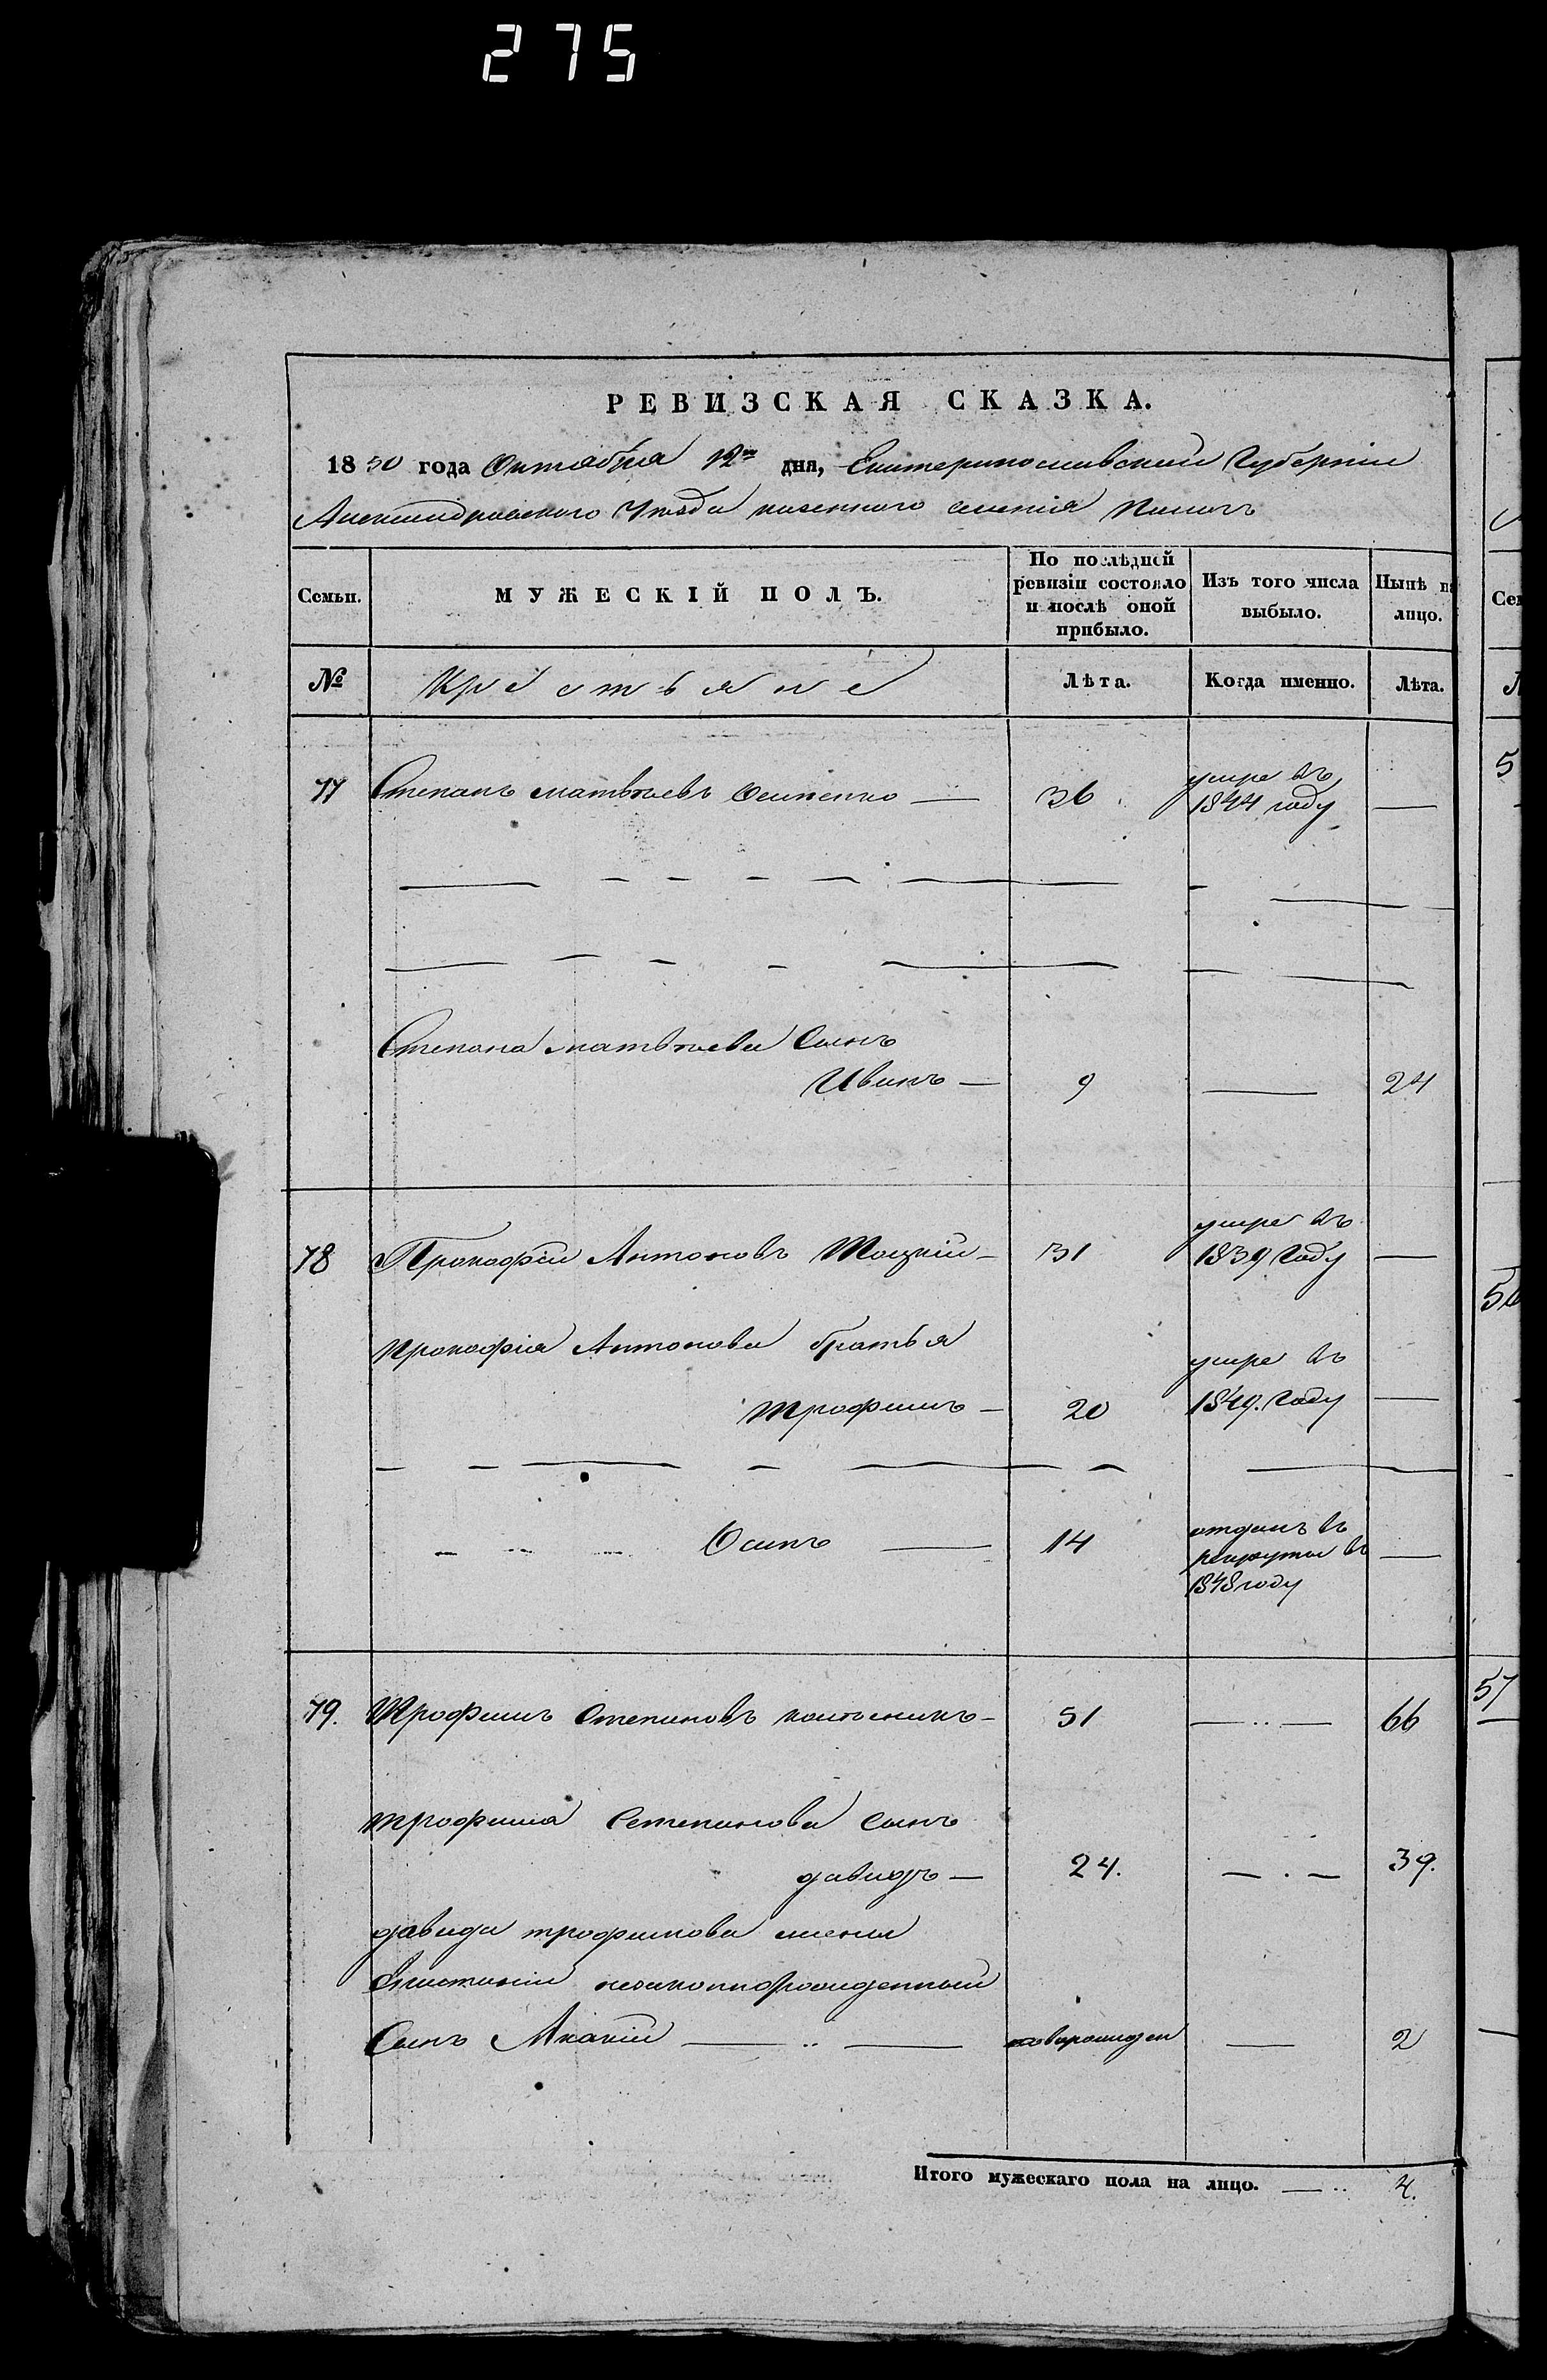 275
РЕВИЗСКАЯ СКАЗКА.
1850 года Октября 12го дня, Екатеринославской Губерніи
Александровского Уезда казенного селенія
Семьи. МУЖЕСКІЙ ПОЛЪ. По послѣдней ревизіи состояло и послѣ оной прибыло. Изъ того числа выбыло. Нынѣ на лицо.
№ Крестьяне Лѣта. Когда именно. Лѣта.
77 Степанъ матвѣевъ Осипенко — 36 умре въ 1844 году —
Степана матвѣева Сынъ
Иванъ — 9 — 24
78 Прокофій Антоновъ Тоцкій — 31 умре въ 1839 Году —
Прокофія Антонова братья
трофимъ — 20 умре въ 1849. Году —
Осипъ — 14 отданъ въ рекруты въ 1848 году —
79. Трофимъ Степановъ колѣсникъ — 51 — 66
трофима Степанова сынъ
давидъ — 24. — 39.
давида трофимова
незаконнорожденный
Сынъ Акакій — новорожден — 2
Итого мужескаго пола на лицо. — 4.
5
57